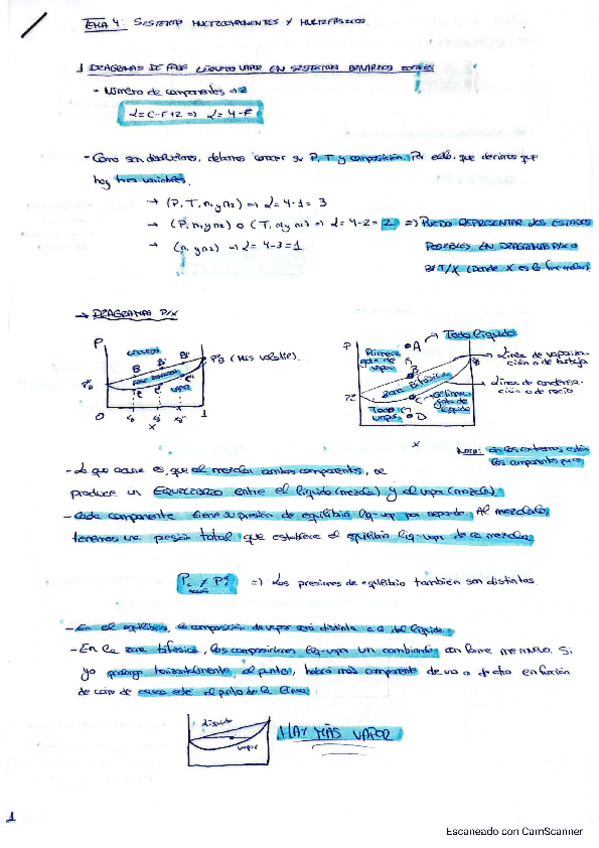 TEMA 4: SISTEMAS MULTICOMPONENTES Y MULTIFÁSICOS.
1 DIAGRAMAS DE FASE LÍQUIDO VAPOR EN SISTEMAS BINARIOS
- Número de componentes → 2
L = C-F+2 => L = 4-F
- Como son disoluciones, debemos conocer su P, T y composición. Por ello, que decimos que
hay tres variables.
→ (P, T, n₁ y n₂) => L = 4-1 = 3
→ (P, n₁ y n₂) o (T, n₁ y n₂) => L = 4-2 = 2 => PUEDO REPRESENTAR LOS ESTADOS
POSIBLES EN DIAGRAMAS P/X o
T/X (Donde X es la fracc. molar).
→ (n₁ y n₂) => L = 4-3 = 1
→ DIAGRAMAS P/X
P
LÍQUIDO
P*B (Más volátil).
B B' B''
VAPOR
0 X 1
P
Primera gota de vapor
A → Todo líquido
Línea de vaporización o de burbuja
Zona Bifásica
Línea de condensación o de rocío
C → última gota de líquido
Todo vapor
D
X
Nota: En los extremos están
los componentes puros
- Lo que ocurre es, que al mezclar ambos componentes, se
produce un EQUILIBRIO entre el líquido (mezcla) y el vapor (mezcla).
- Cada componente tiene su presión de equilibrio líq-vapor por separado. Al mezclarlos,
tenemos una presión total que establece el equilibrio líq-vapor de la mezcla.
=> Las presiones de equilibrio también son distintas.
- En el equilibrio, la composición de vapor será distinta a la del líquido.
- En la zona bifásica, las composiciones líq-vapor van cambiando conforme me muevo. Si
yo prolongo horizontalmente el punto, habrá más componente de uno u otro en función
de cómo de cerca esté el punto de la línea.
líquido
vapor
HAY MÁS VAPOR
1
Escaneado con CamScanner